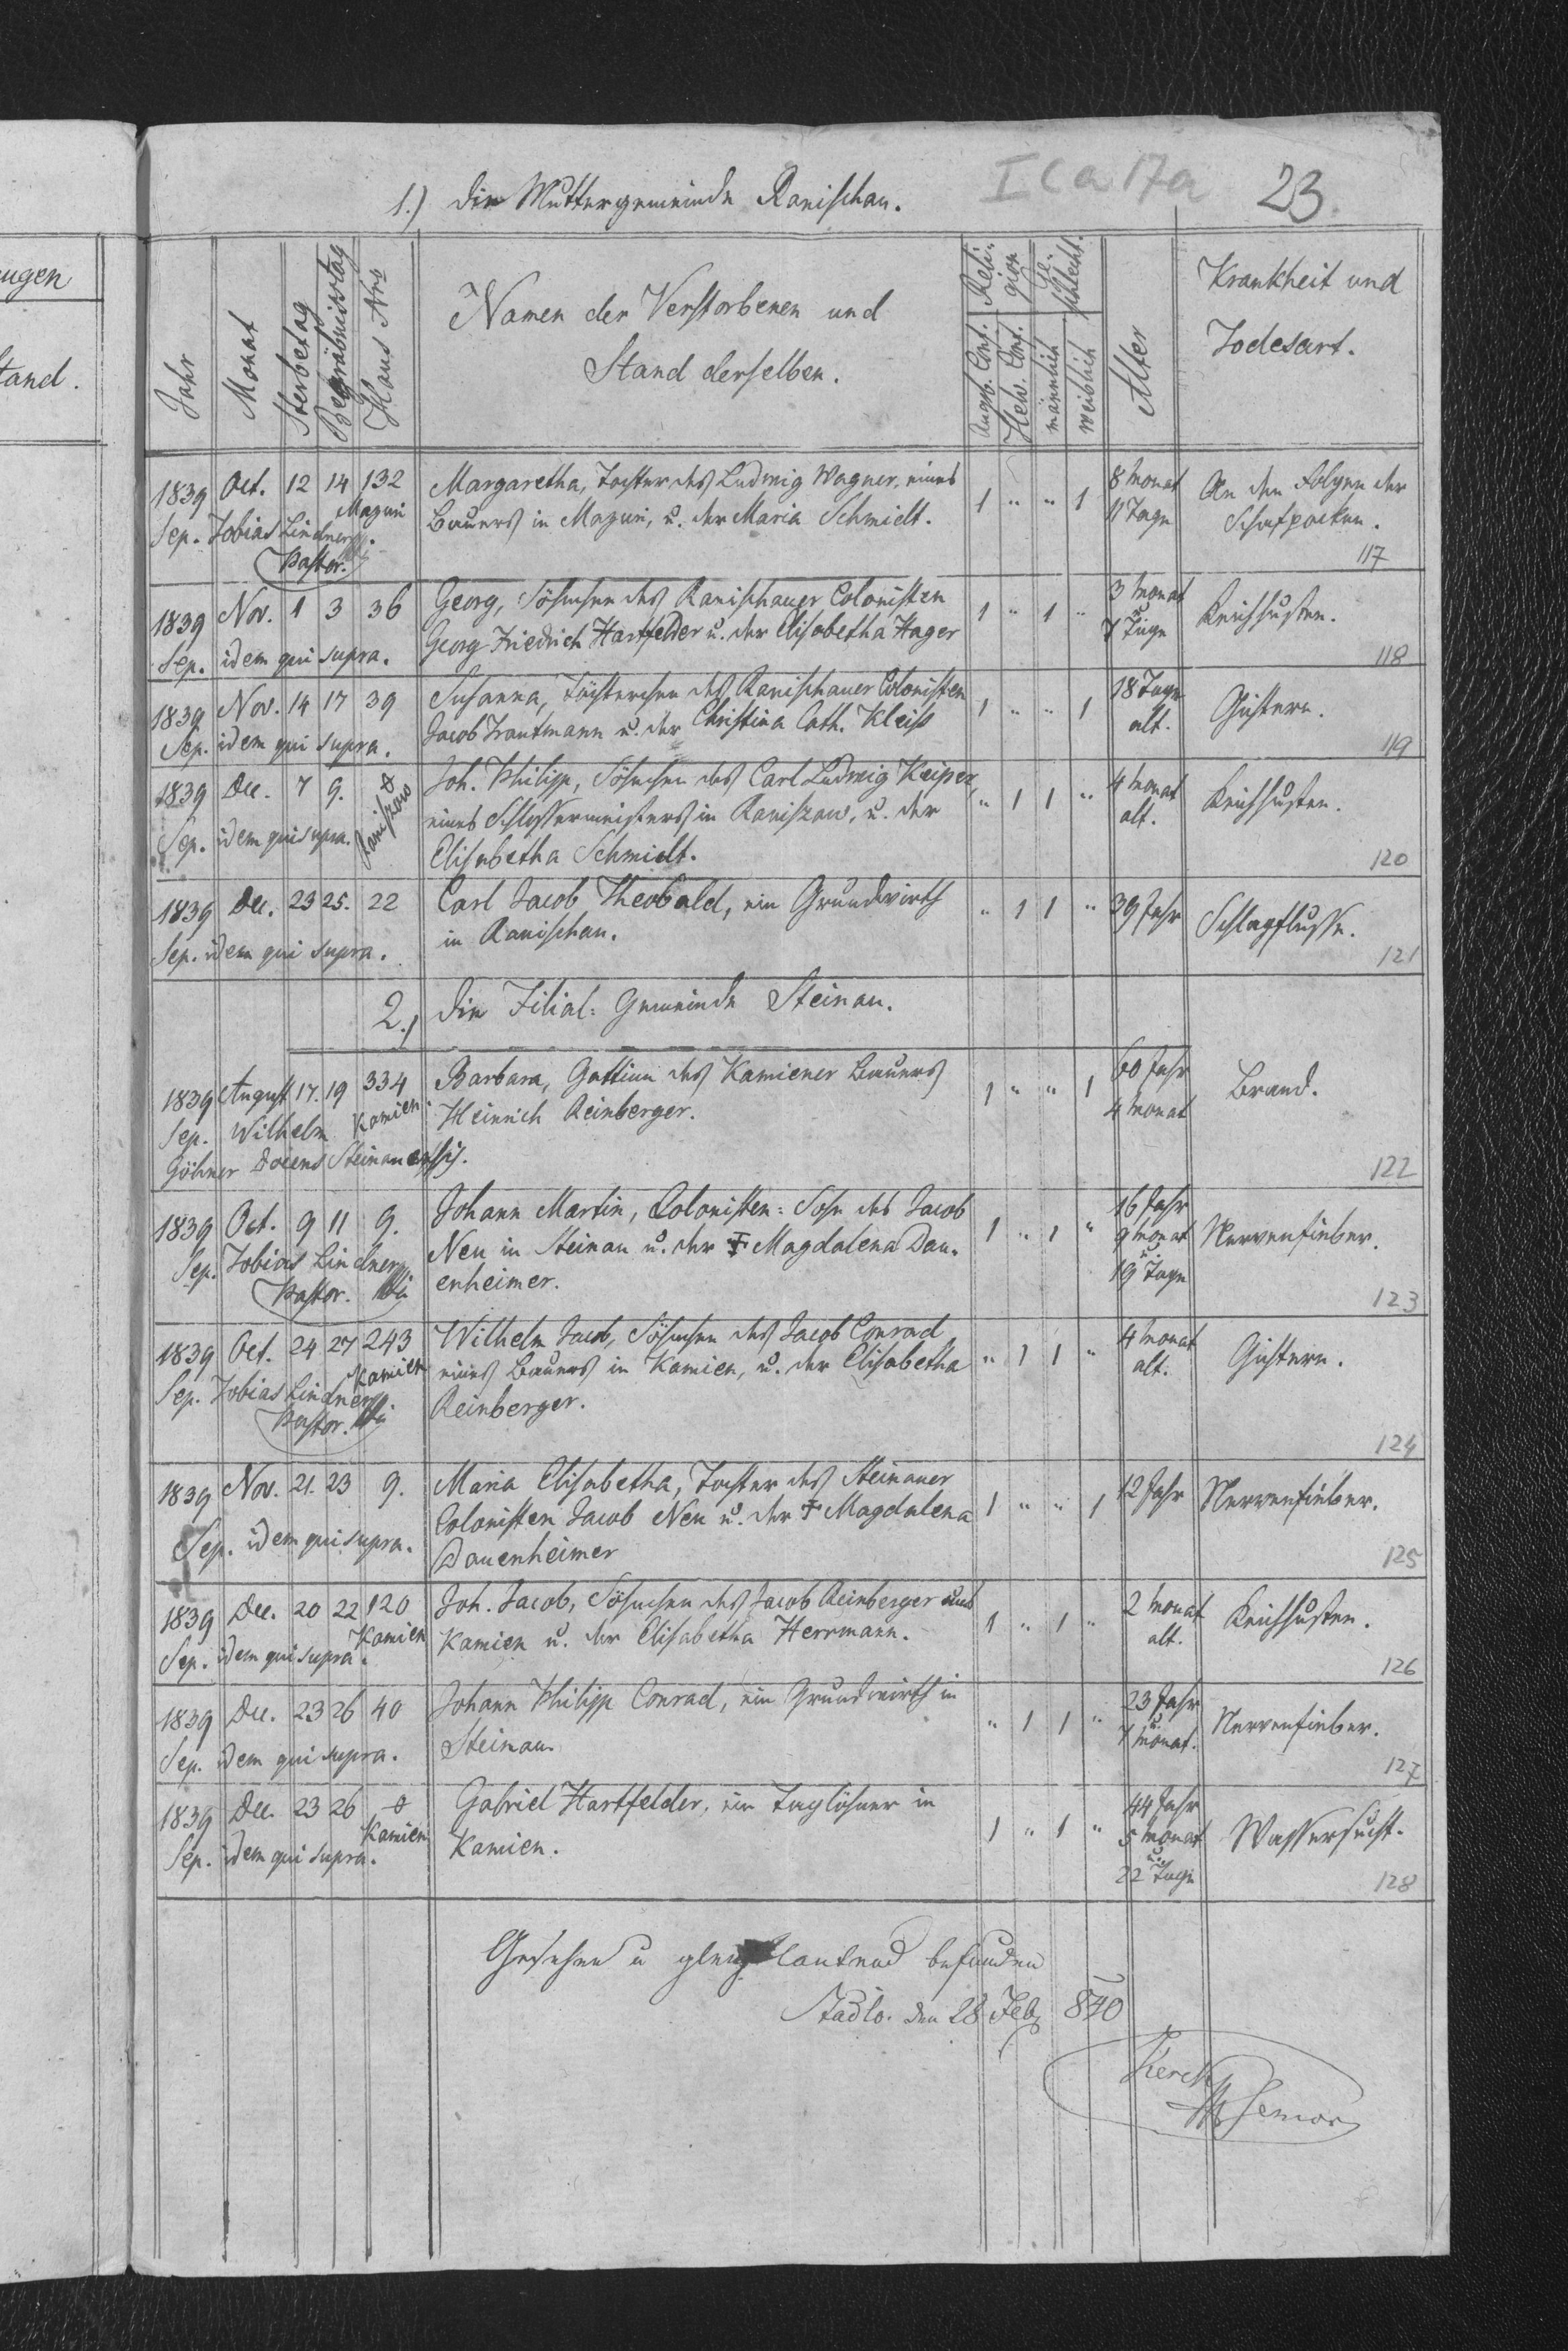 ugen
tand.
I C a 17a
23.
1.) Die Muttergemeinde Ranischau.
Jahr
Monat
Sterbetag
Begräbnisstag
Haus Nro
Namen der Verstorbenen und
Stand derselben.
Religion
Augsb. Conf.
Helv. Conf.
Geschlecht.
männlich
weiblich
Alter
Krankheit und
Todesart.
1839 Oct. 12 14 132 Margaretha, Tochter des Ludwig Wagner, eines 1 " " 1 8 Monat An den Folgen der
Mazuri Bauers in Mazuri, u. der Maria Schmidt. 11 Tage Schafpocken.
Sep. Tobias Lindner
Pastor.
117
1839 Nov. 1 3 36 Georg, Söhnchen des Ranischauer Colonisten 1 " 1 " 3 Monat Keichhusten.
Sep. idem qui supra. Georg Friedrich Hartfelder u. der Elisabetha Hager u 7 Tage
118
1839 Nov. 14 17 39 Susanna, Töchterchen des Ranischauer Colonisten 1 " " 1 18 Tage Gichtern.
Sep. idem qui supra. Jacob Trautmann u. der Christina Cath. Kleiss alt.
119
1839 Dec. 7 9. Raniszow Joh. Philipp, Söhnchen des Carl Ludwig Keiper, " 1 1 " 4 Monat Keichhusten.
Sep. idem qui supra. eines Schlossermeisters in Raniszow, u. der alt.
Elisabetha Schmidt.
120
1839 Dec. 23 25. 22 Carl Jacob Theobald, ein Grundwirth " 1 1 " 39 Jahr Schlagflusse.
Sep. idem qui supra. in Ranischau.
121
2.) Die Filial: Gemeinde Steinau.
1839 August 17. 19 334 Barbara, Gattinn des Kamiener Bauers 1 " " 1 60 Jahr Brand.
Sep. Wilhelm Kamien Heinrich Reinberger. 4 Monat
Göhner Docens Steinauensis.
122
1839 Oct. 9 11 9. Johann Martin, Colonisten: Sohn des Jacob 1 " 1 " 16 Jahr Nervenfieber.
Sep. Tobias Lindner Neu in Steinau u. der † Magdalena Dau- 9 Monat
Pastor. enheimer. u. 19 Tage
123
1839 Oct. 24 27 243 Wilhelm Jacob, Söhnchen des Jacob Conrad " 1 1 " 4 Monat Gichtern.
Kamien eines Bauers in Kamien, u. der Elisabetha alt.
Sep. Tobias Lindner Reinberger.
Pastor.
124
1839 Nov. 21. 23 9. Maria Elisabetha, Tochter des Steinauer 1 " " 1 12 Jahr Nervenfieber.
Colonisten Jacob Neu u. der † Magdalena
Sep. idem qui supra. Dauenheimer
125
1839 Dec. 20 22 120 Joh. Jacob, Söhnchen des Jacob Reinberger aus 1 " 1 " 2 Monat Keichhusten.
Sep. idem qui supra. Kamien Kamien u. der Elisabetha Herrmann. alt.
126
1839 Dec. 23 26 40 Johann Philipp Conrad, ein Grundwirth in " 1 1 " 23 Jahr Nervenfieber.
Sep. idem qui supra. Steinau. u 7 Monat.
127
1839 Dec. 23 26 Gabriel Hartfelder, ein Taglöhner in 1 " 1 " 44 Jahr Wassersucht.
Sep. idem qui supra. Kamien Kamien. 5 Monat
u. 22 Tage
128
Gesehen u gleichlautend befunden
Stadlo. den 28 Feb 840
Senior